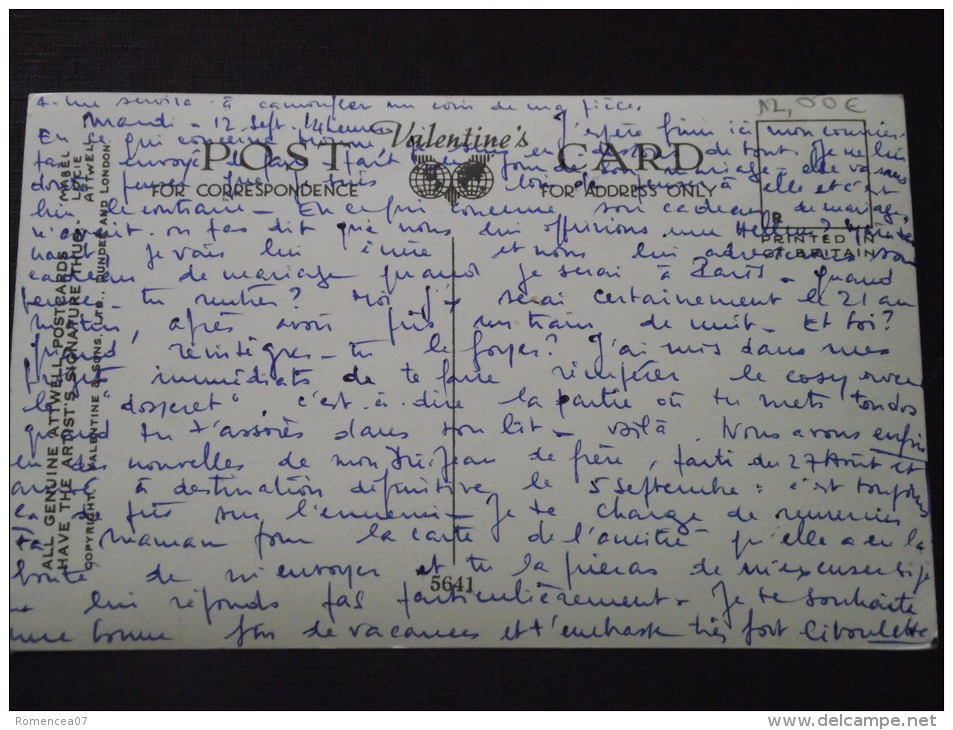 me servira à camoufler un coin de ma pièce.
12,00 €
Mardi - 12 Sept. 14 heures
Valentine's
POST CARD
FOR CORRESPONDENCE
FOR ADDRESS ONLY
PRINTED IN
GT. BRITAIN
ALL GENUINE ATTWELL POSTCARDS
HAVE THE ARTIST'S SIGNATURE, THUS:-
MABEL
LUCIE
ATTWELL
COPYRIGHT. VALENTINE & SONS, LTD. DUNDEE AND LONDON
J'espère finir ici mon courrier.
En ce qui concerne
pas envoyé le faire part de tout. Je ne lui
de son mariage - elle va sans
doute penser que je suis à elle et c'est
bien le contraire - En ce qui concerne son cadeau de mariage,
n'avait-on pas dit que nous lui offririons une
je vais lui écrire et nous lui
cadeau de mariage quand je serai à Paris - Quand
penses-tu rentrer? Moi j'y serai certainement le 21 au
matin, après avoir pris un train de nuit - Et toi?
Quand réintègres-tu le foyer? J'ai mis dans mes
projets immédiats de te faire récupérer le cosy avec
le "dosseret", c'est-à-dire la partie où tu mets ton dos
quand tu t'assoies dans ton lit - Voilà. Nous avons enfin
eu des nouvelles de mon Jean de frère, parti du 27 Août et
arrivé à destination définitive le 5 Septembre: c'est toujours
ça de pris sur l'ennemi - Je te charge de remercier
ta maman pour la carte de l'amitié qu'elle a eu la
bonté de m'envoyer et tu la prieras de m'excuser si je
ne lui réponds pas particulièrement - Je te souhaite
une bonne fin de vacances et t'embrasse très fort Ciboulette
5641
Romencea07
www.delcampe.net